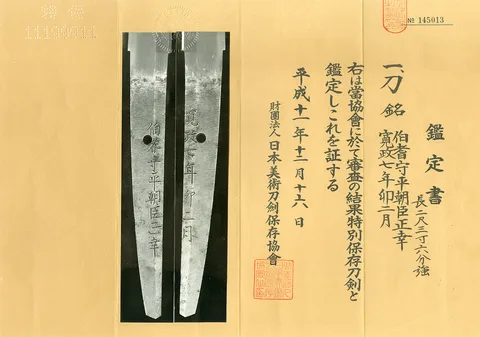 № 145013
鑑定書
一、刀 銘 伯耆守平朝臣正幸
寛政七年卯二月
長二尺三寸六分強
右は當協會に於て審査の結果特別保存刀剣と
鑑定しこれを証する
平成十一年十二月十六日
財團法人 日本美術刀劍保存協會
寛政七年卯二月
伯耆守平朝臣正幸